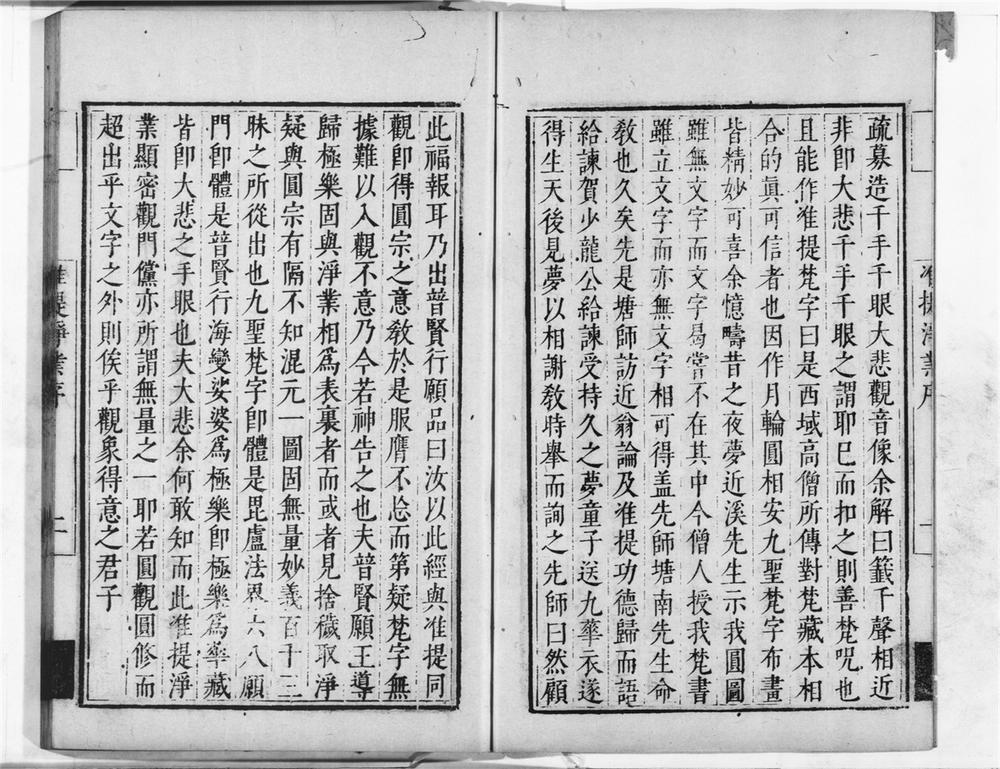 疏募造千手千眼大悲觀音像余解曰籤千聲相近
非卽大悲千手千眼之謂耶巳而扣之則善梵呪也
且能作准提梵字曰是西域高僧所傳對梵藏本相
合的眞可信者也因作月輪圓相安九聖梵字布畫
皆精妙可喜余憶疇昔之夜夢近溪先生示我圓圖
雖無文字而文字曷甞不在其中今僧人授我梵書
雖立文字而亦無文字相可得盖先師塘南先生命
敎也久矣先是塘師訪近翁論及准提功德歸而語
給諫賀少龍公給諫受持久之夢童子送九華衣遂
得生天後見夢以相謝敎時舉而詢之先師曰然顧
准提淨業序
一
此福報耳乃出普賢行願品曰汝以此經與准提同
觀卽得圓宗之意敎於是服膺不怠而第疑梵字無
據難以入觀不意乃今若神告之也夫普賢願王導
歸極樂固與淨業相爲表裏者而或者見捨穢取淨
疑與圓宗有隔不知混元一圖固無量妙義百千三
昧之所從出也九聖梵字卽體是毘盧法界六八願
門卽體是普賢行海變娑婆爲極樂卽極樂爲華藏
皆卽大悲之手眼也夫大悲余何敢知而此准提淨
業顯密觀門儻亦所謂無量之一耶若圓觀圓修而
超出乎文字之外則俟乎觀象得意之君子
准提淨業序
二